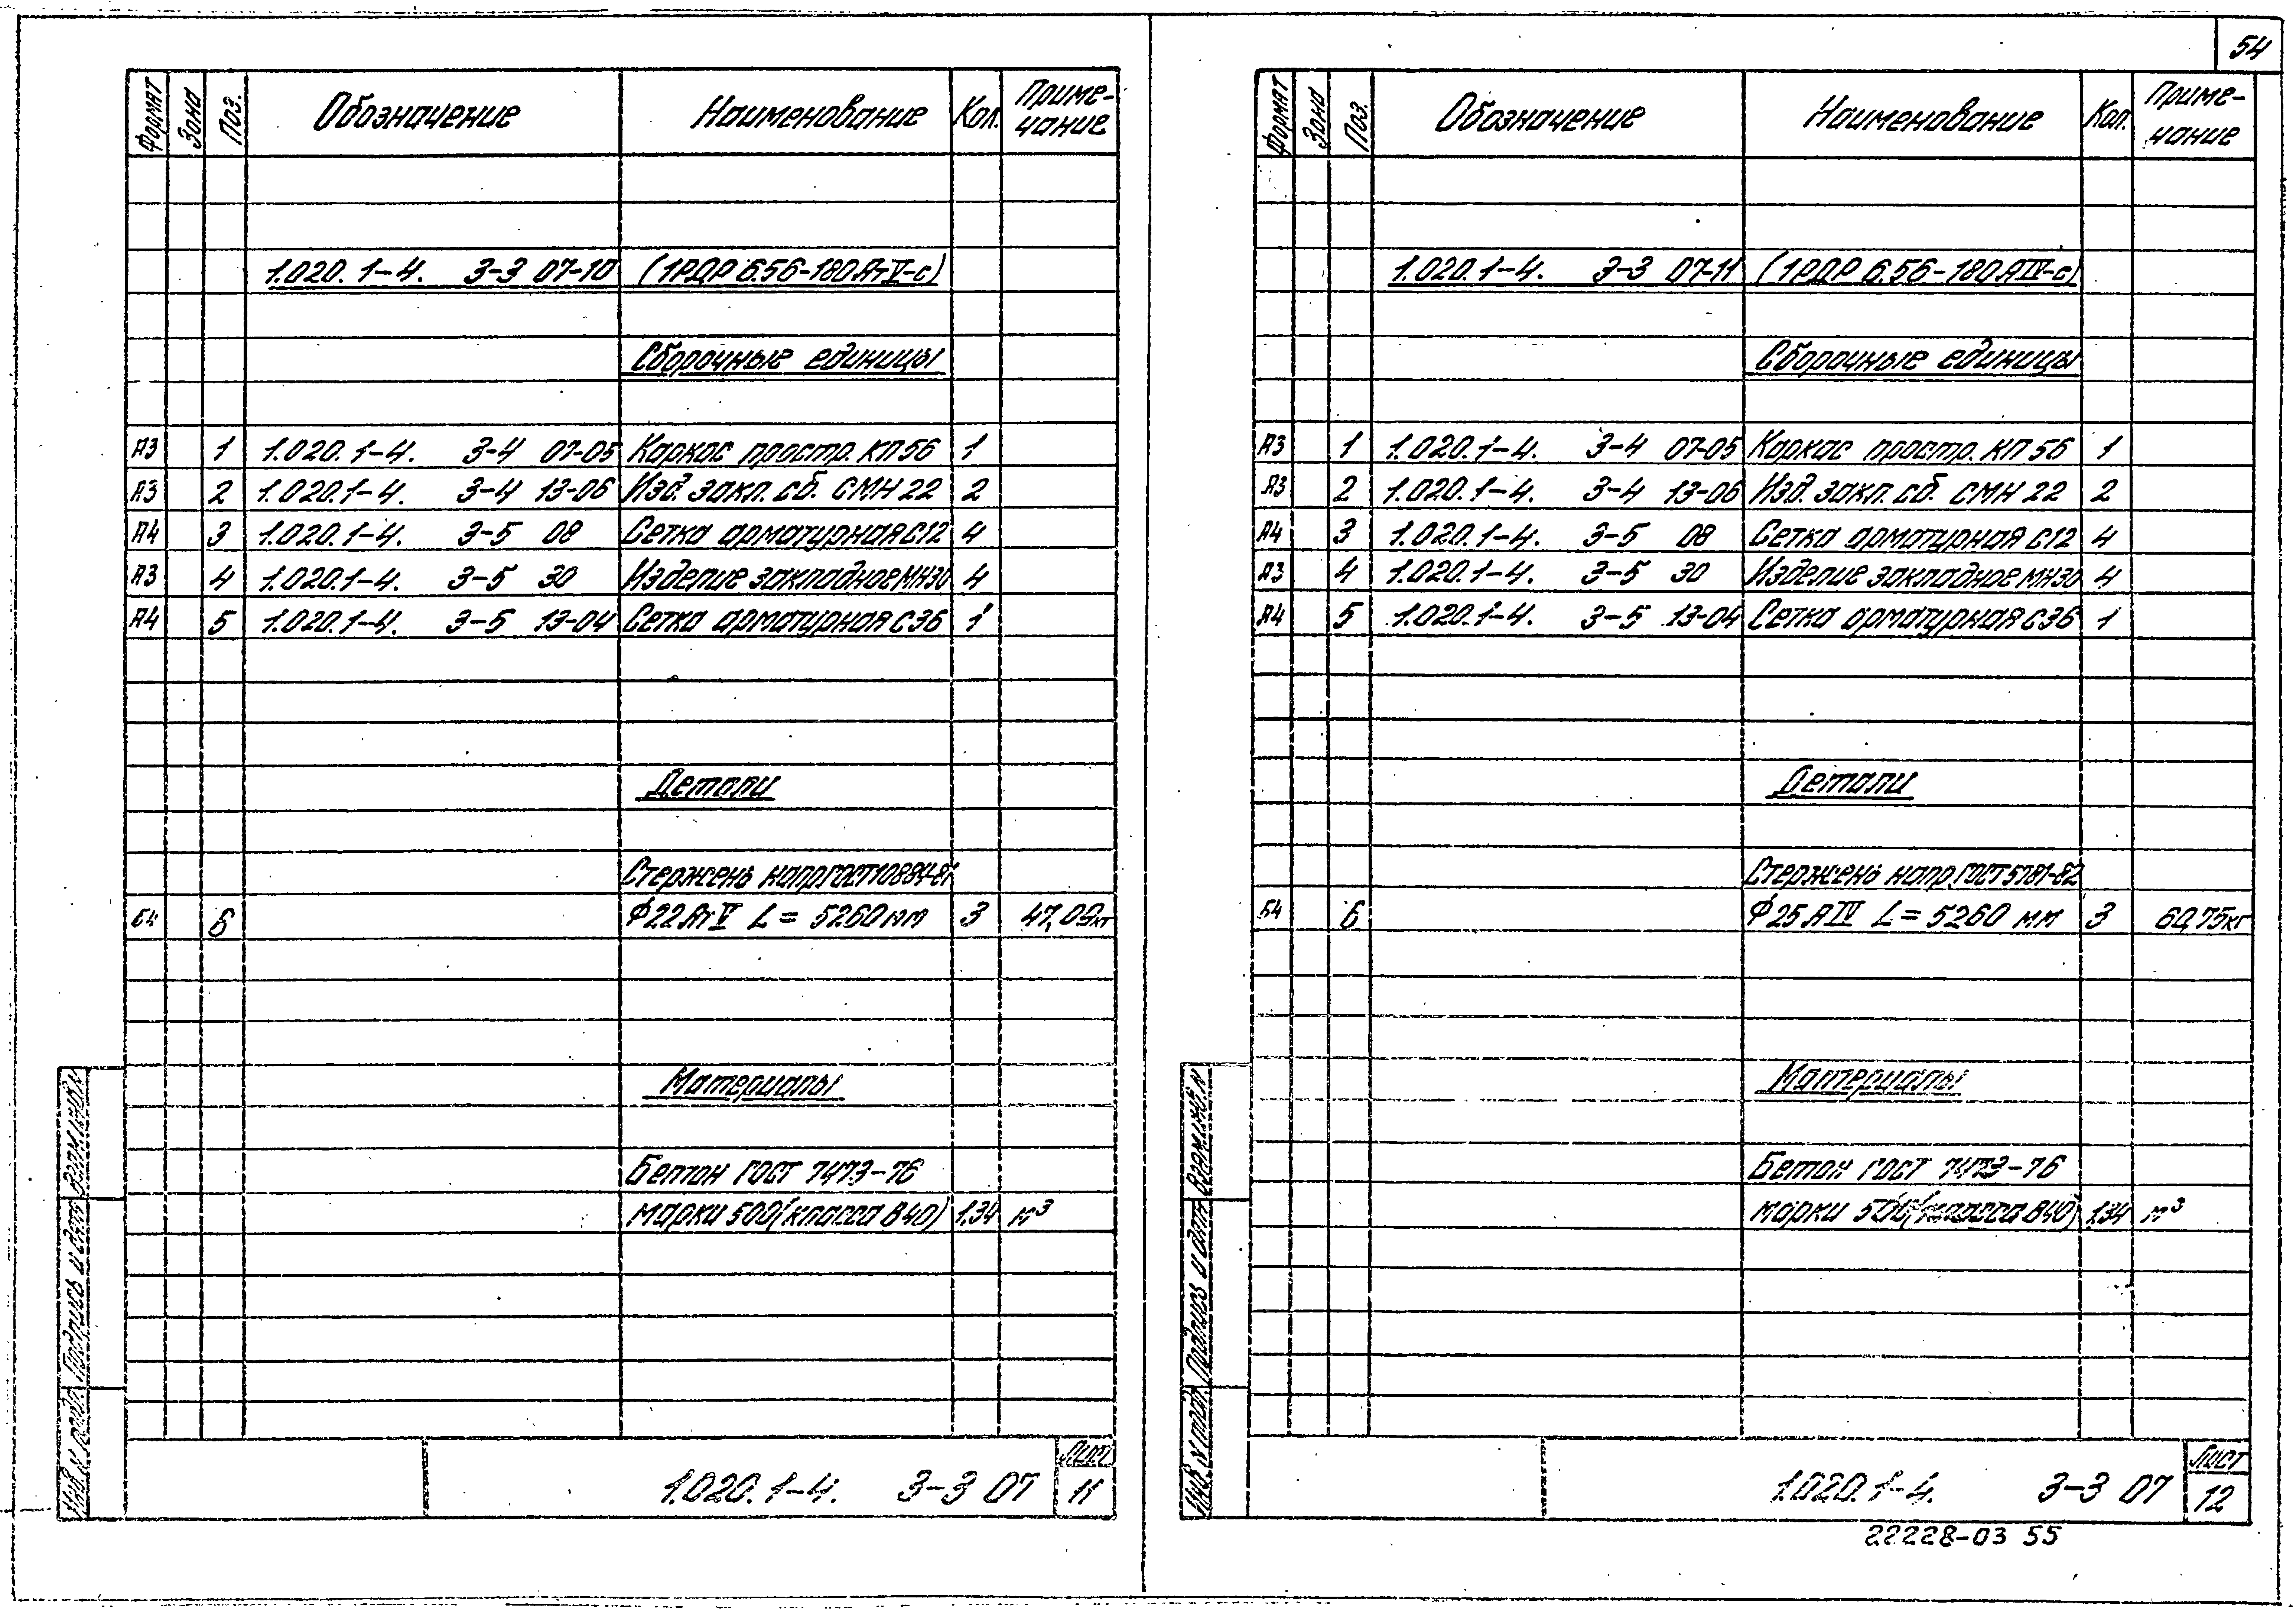 54
Формат Зона Поз. Обозначение Наименование Кол. Приме-чание
1.020.1-4. 3-3 07-10 (1РДР 6.56-180 АтV-с)
Сборочные единицы
А3 1 1.020.1-4. 3-4 07-05 Каркас простр. КП 56 1
А3 2 1.020.1-4. 3-4 13-06 Изд. закл. сб. СМН 22 2
А4 3 1.020.1-4. 3-5 08 Сетка арматурная С12 4
А3 4 1.020.1-4. 3-5 30 Изделие закладное МН30 4
А4 5 1.020.1-4. 3-5 13-04 Сетка арматурная С36 1
Детали
Стержень напр ГОСТ 10884-81
Б4 6 Ф22АтV L = 5260 мм 3 47,09кг
Материалы
Бетон ГОСТ 7473-76
марки 500 (класса В40) 1.34 м³
Инв. № подл. Подпись и дата Взам. инв. №
1.020.1-4. 3-3 07 Лист 11
Формат Зона Поз. Обозначение Наименование Кол. Приме-чание
1.020.1-4. 3-3 07-11 (1РДР 6.56-180 АIV-с)
Сборочные единицы
А3 1 1.020.1-4. 3-4 07-05 Каркас простр. КП 56 1
А3 2 1.020.1-4. 3-4 13-06 Изд. закл. сб. СМН 22 2
А4 3 1.020.1-4. 3-5 08 Сетка арматурная С12 4
А3 4 1.020.1-4. 3-5 30 Изделие закладное МН30 4
А4 5 1.020.1-4. 3-5 13-04 Сетка арматурная С36 1
Детали
Стержень напр. ГОСТ 5781-82
Б4 6 Ф25 АIV L = 5260 мм 3 60,75кг
Материалы
Бетон ГОСТ 7473-76
марки 500 (класса В40) 1.34 м³
Инв. № подл. Подпись и дата Взам. инв. №
1.020.1-4. 3-3 07 Лист 12
22228-03 55